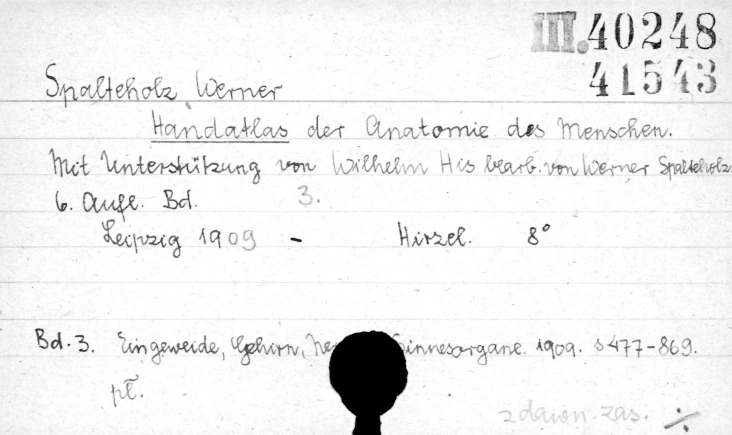 III.40248
41543
Spalteholz Werner
Handatlas der Anatomie des Menschen.
Mit Unterstützung von Wilhelm His bearb. von Werner Spalteholz.
6. Aufl. Bd. 3.
Leipzig 1909 - Hirzel. 8°
Bd. 3. Eingeweide, Gehirn, Sinnesorgane. 1909. s 477-869.
pł.
z dawn. zas. ÷